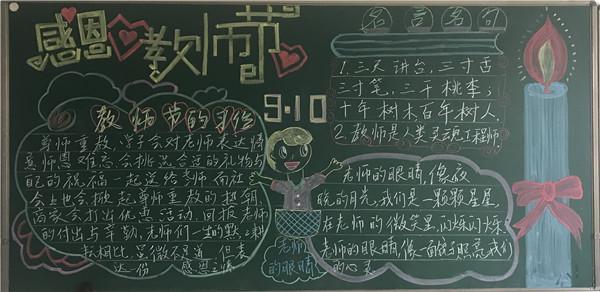 感恩教师节
名言名句
1. 三尺讲台, 三寸舌
三寸笔, 三千桃李;
十年树木百年树人.
2. 教师是人类灵魂工程师.
9.10
教师节的习俗
尊师重教, 学子会对老师表达情
意师恩难忘会挑选合适的礼物与
自己的祝福一起送给老师而社
会上也会掀起尊师重教的热朝
商家会打出优惠活动, 回报老师
的付出与辛勤. 老师们一生的默默耕
耘相比显微不足道, 但表
达一份 感恩之情
老师
的眼睛
老师的眼睛, 像夜
晚的月光, 我们是一颗颗星星,
在老师的微笑里, 闪烁闪烁.
老师的眼睛, 像一面镜子照亮我们
的心灵